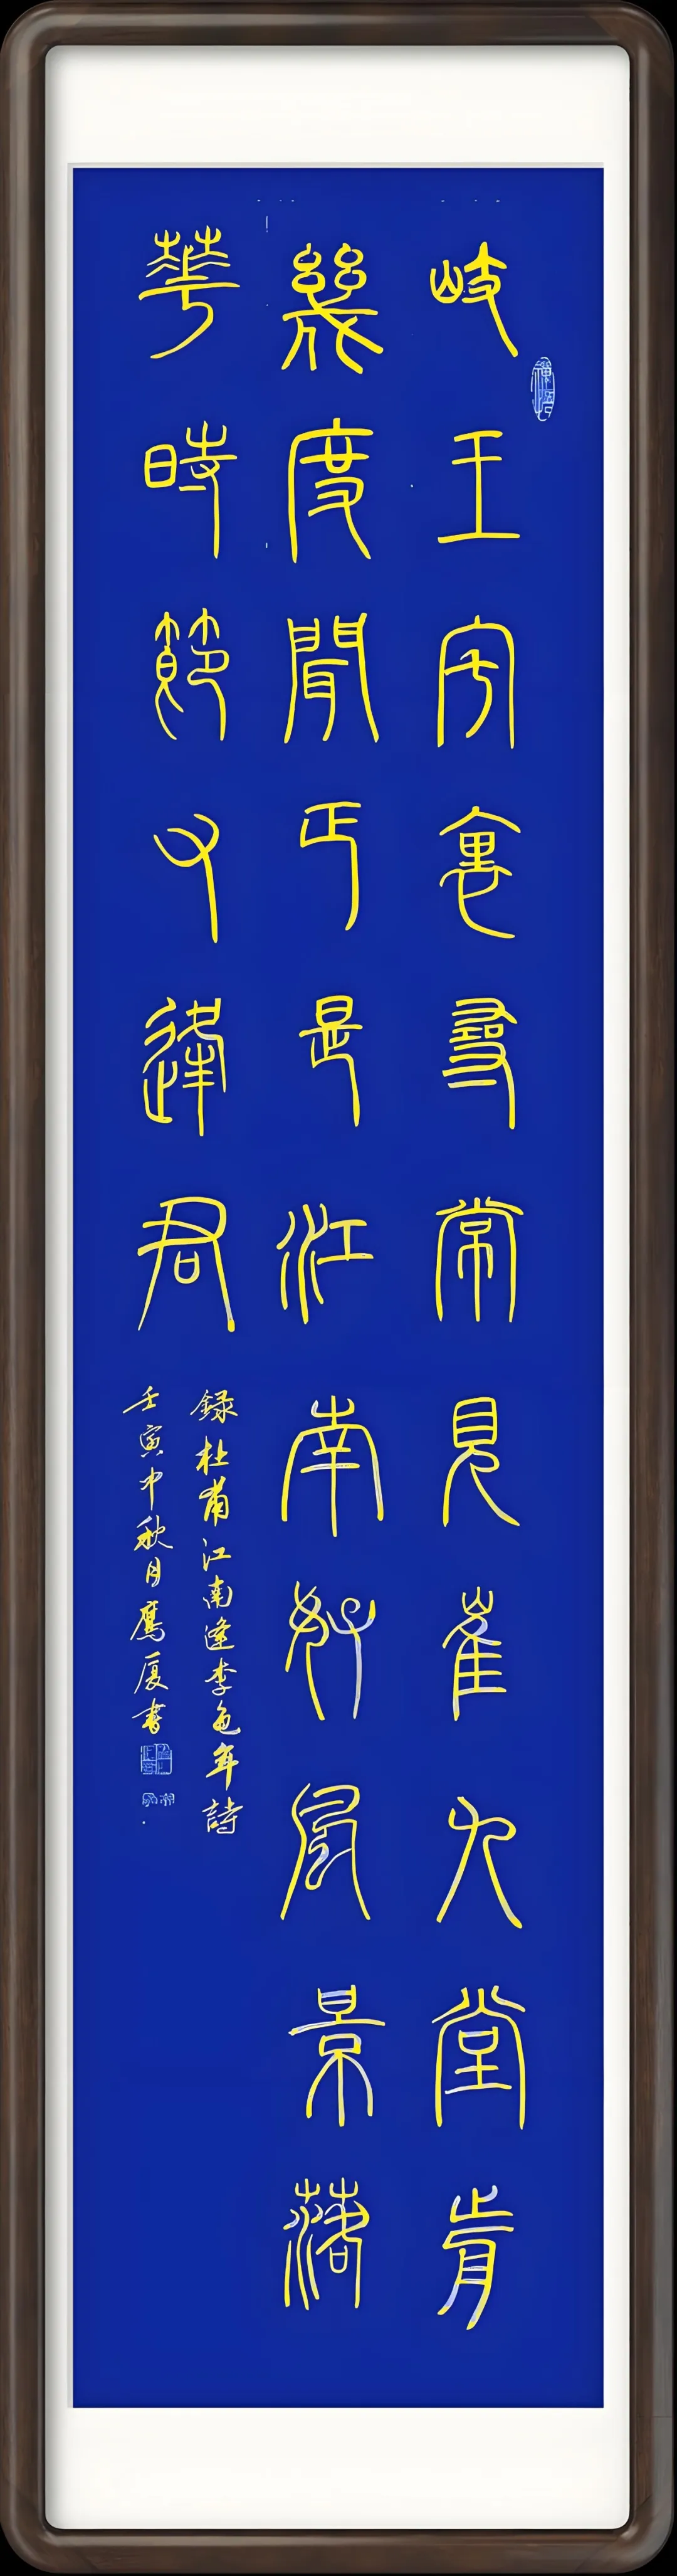 岐王宅裏尋常見崔九堂前
幾度聞正是江南好風景落
華時節又逢君
録杜甫江南逢李龟年詩
壬寅中秋月鷹厦書